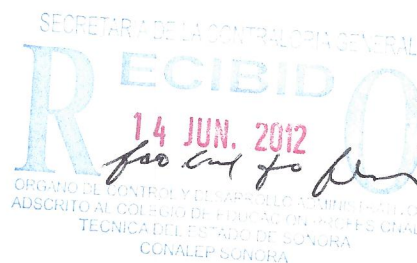 SECRETARIA DE LA CONTRALORIA GENERAL
RECIBIDO
14 JUN. 2012
ORGANO DE CONTROL Y DESARROLLO ADMINISTRATIVO
ADSCRITO AL COLEGIO DE EDUCACION PROFESIONAL
TECNICA DEL ESTADO DE SONORA
CONALEP SONORA